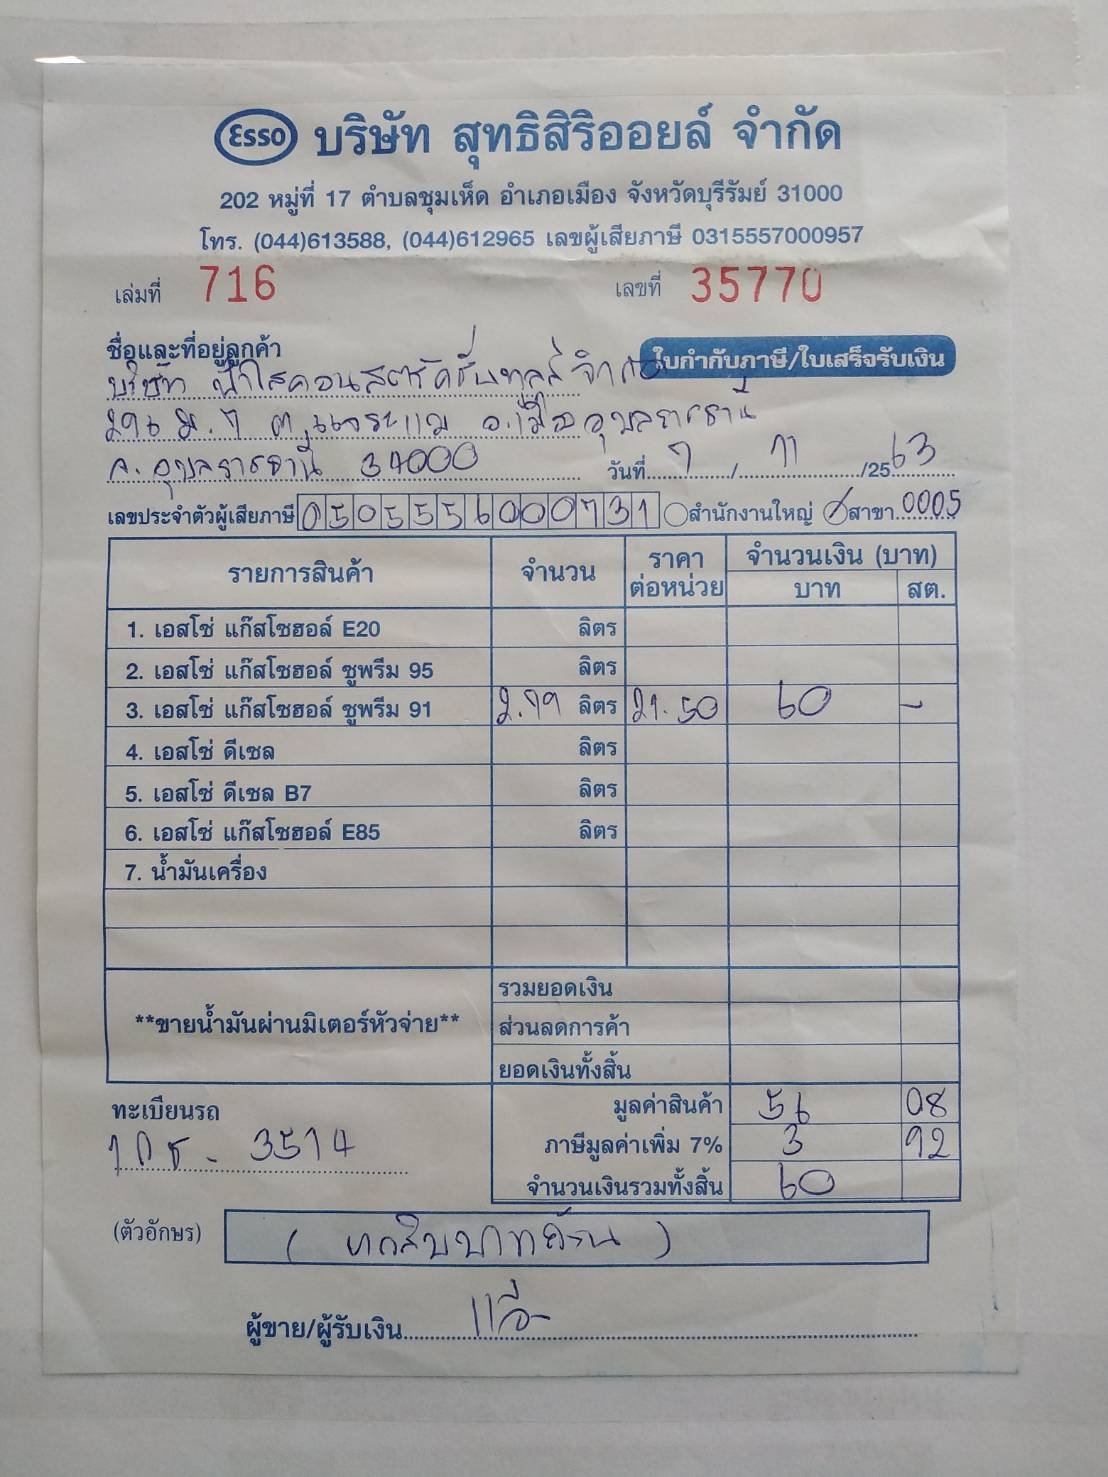 Esso บริษัท สุทธิสิริออยล์ จำกัด
202 หมู่ที่ 17 ตำบลชุมเห็ด อำเภอเมือง จังหวัดบุรีรัมย์ 31000
โทร. (044)613588, (044)612965 เลขผู้เสียภาษี 0315557000957
เล่มที่ 716 เลขที่ 35770
ชื่อและที่อยู่ลูกค้า ใบกำกับภาษี/ใบเสร็จรับเงิน
บริษัท ฟ้าใสคอนสตรัคชั่นทูลส์ จำกัด
296 ม.7 ต.แจระแม อ.เมืองอุบลราชธานี
จ.อุบลราชธานี 34000 วันที่ 7 / 11 /2563
เลขประจำตัวผู้เสียภาษี 0505556000731 สำนักงานใหญ่ สาขา 0005
รายการสินค้า จำนวน ราคาต่อหน่วย จำนวนเงิน (บาท)
บาท สต.
1. เอสโซ่ แก๊สโซฮอล์ E20 ลิตร
2. เอสโซ่ แก๊สโซฮอล์ ซูพรีม 95 ลิตร
3. เอสโซ่ แก๊สโซฮอล์ ซูพรีม 91 2.79 ลิตร 21.50 60 -
4. เอสโซ่ ดีเซล ลิตร
5. เอสโซ่ ดีเซล B7 ลิตร
6. เอสโซ่ แก๊สโซฮอล์ E85 ลิตร
7. น้ำมันเครื่อง
รวมยอดเงิน
**ขายน้ำมันผ่านมิเตอร์หัวจ่าย** ส่วนลดการค้า
ยอดเงินทั้งสิ้น
ทะเบียนรถ มูลค่าสินค้า 56 08
3514 ภาษีมูลค่าเพิ่ม 7% 3 92
จำนวนเงินรวมทั้งสิ้น 60
(ตัวอักษร) ( หกสิบบาทถ้วน )
ผู้ขาย/ผู้รับเงิน